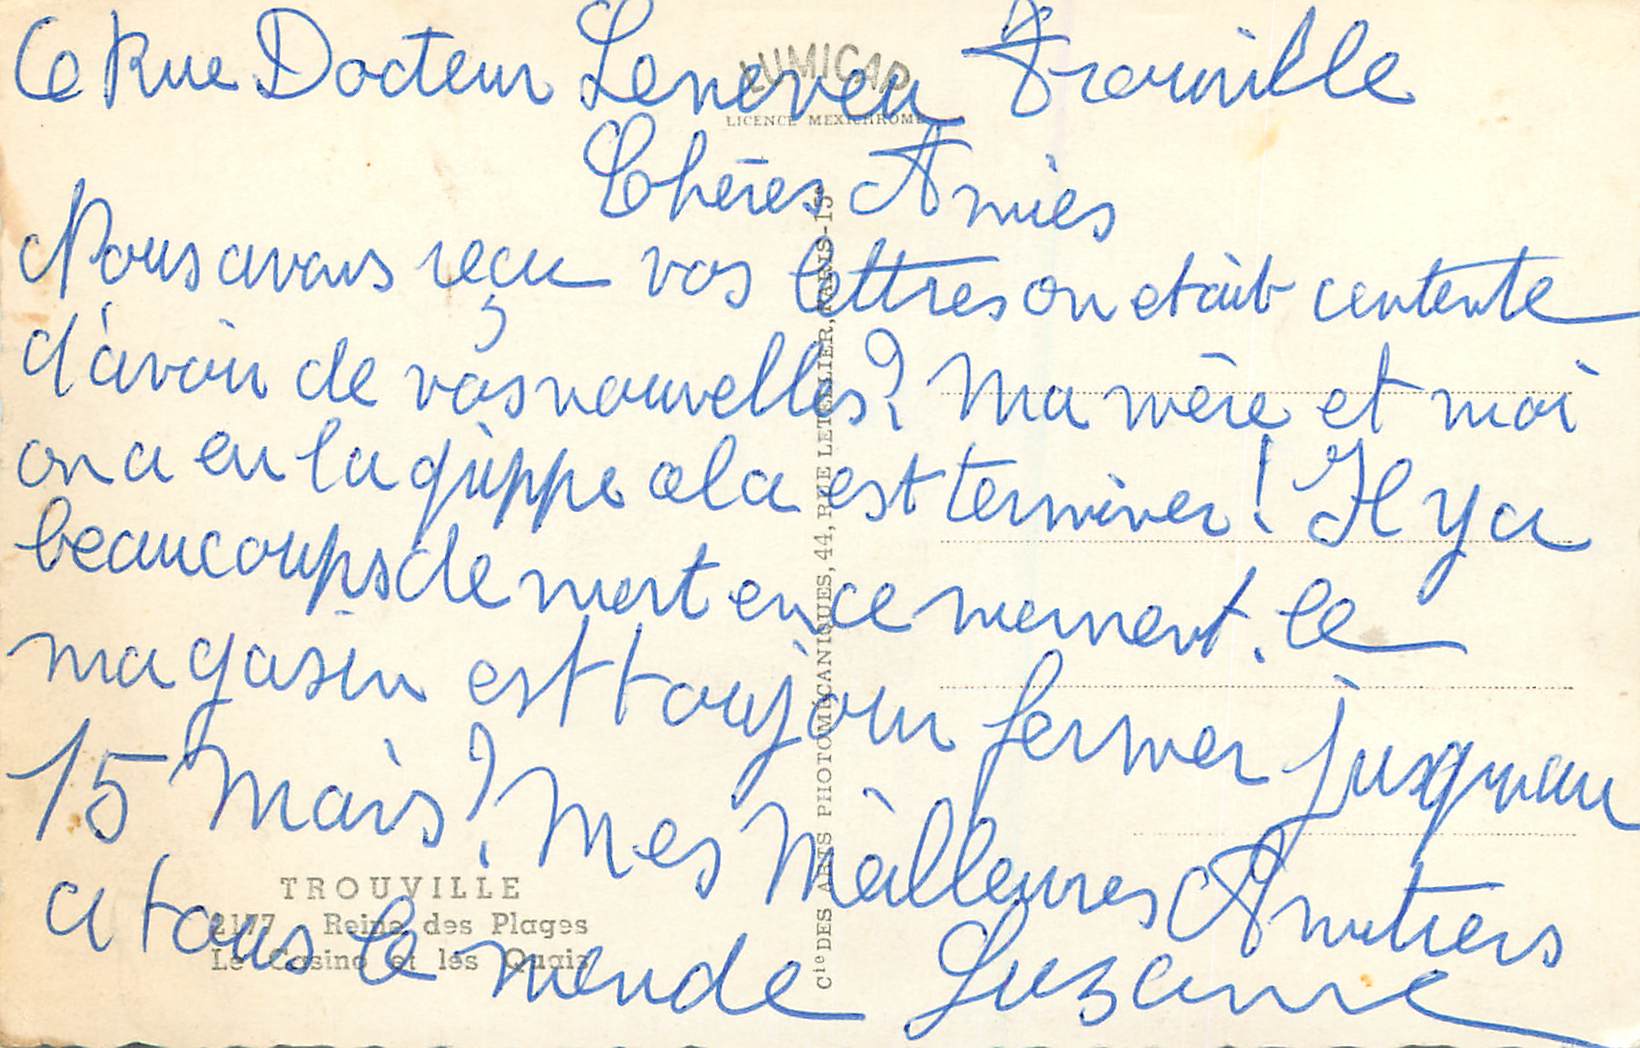 6 Rue Docteur Leneveu Trouville
LUMICAP
LICENCE MEXICHROME
Chères Amies
Nous avons reçu vos lettres on etait contente
d'avoir de vos nouvelles? Ma mère et moi
on a eu la grippe cela est terminer! Il y a
beaucoups de mort en ce moment. le
magasin est toujour fermer jusqueau
15 Mars? Mes Meilleures Amitiers
a tous le monde Suzanne
TROUVILLE
Reine des Plages
Le Casino et les Quais
Cie DES ARTS PHOTOMÉCANIQUES, 44, RUE LETELLIER, PARIS-15e